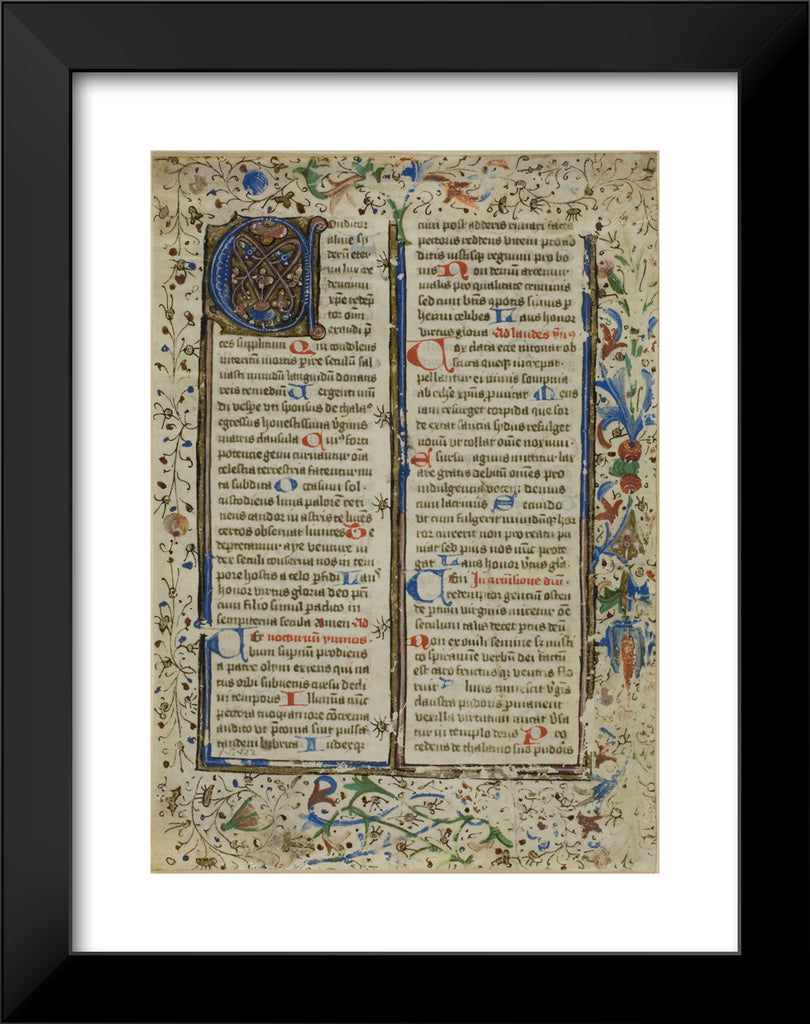 Conditor
alme sy
derū eter
na lux cre
dencium
xp̄e redēp
tor oīm
exaudi p̄
ces supplicum Qui condolens
interitū mortis p̄ire seculū sal
uasti mundū languidū donans
reis remediū Vergenti mū
di vesp̄e vti sponsus de thalaō
egressus honestissima v̄ginis
matris clausula Quiꝰ forti
potencie genu curuantur oīa
celestia terrestria fatentur nu
tu subdita Occasum sol
custodiens luna palorem reti
nens candor in astris relucēs
certos obseruat limites Te
deprecamur aẏe venture iu
dex seculi conserua nos in tem
pore hostis a telo p̄fidi Lausꝰ
honor virtus gloria deo pr̄i
cum filio simul p̄adito in
sempiterna secula Amen Ad
Ver nocturnū ymnos
bum sup̄nū prodiens
a patre olym exiens qui na
tus orbi subuenis cursu decli
ui temporis Illumina nūc
pectora tuoq; amore cōcrema
audito vt p̄conia sint pulsa
tandem lubrica Iudexq;
cum post aderis rimari facta
pectoris reddens vicem pro ab
ditis iustisq; regnum pro bo
nis Non demū artemur
malis pro qualitate criminis
sed cum btīs qpotis simus p̄
hemni celibes Laus honor
virtus gloria Ad laudes ym̄ꝰ
Vox clara ecce intonat ob
scura queq; increpat
pellantur eminus sompnia
ab ethe xp̄us p̄micat Mens
iam resurget torpida que sor
de extat saucia sydus refulget
nouū vt tollat om̄e noxium
Esursū agnus mittitur lax
are gratis debitū omēs pro
indulgencia vocem demus
cum lacrimis Secundo
vt cum fulgerit mundūq; hor
ror cinxerit non pro reatu pu
niat sed pius nos tunc prote
gat Laus honor v̄tus gīa
Veni In aduēsione dm̄
redemptor gencium osten
de p̄tum virginis miretur oē
seculum talis decet p̄tus deū
Non ex virili semine sꝫ misti
co spiramē verbū dei factū
est caro fructusq; ventris flo
ruit Aluus tumescit v̄gīs
claustra pudoris p̄manent
vexilla virtutum micāt v̄sa
tur in templo deus Pro
cedens de thalamo suo pudoīs